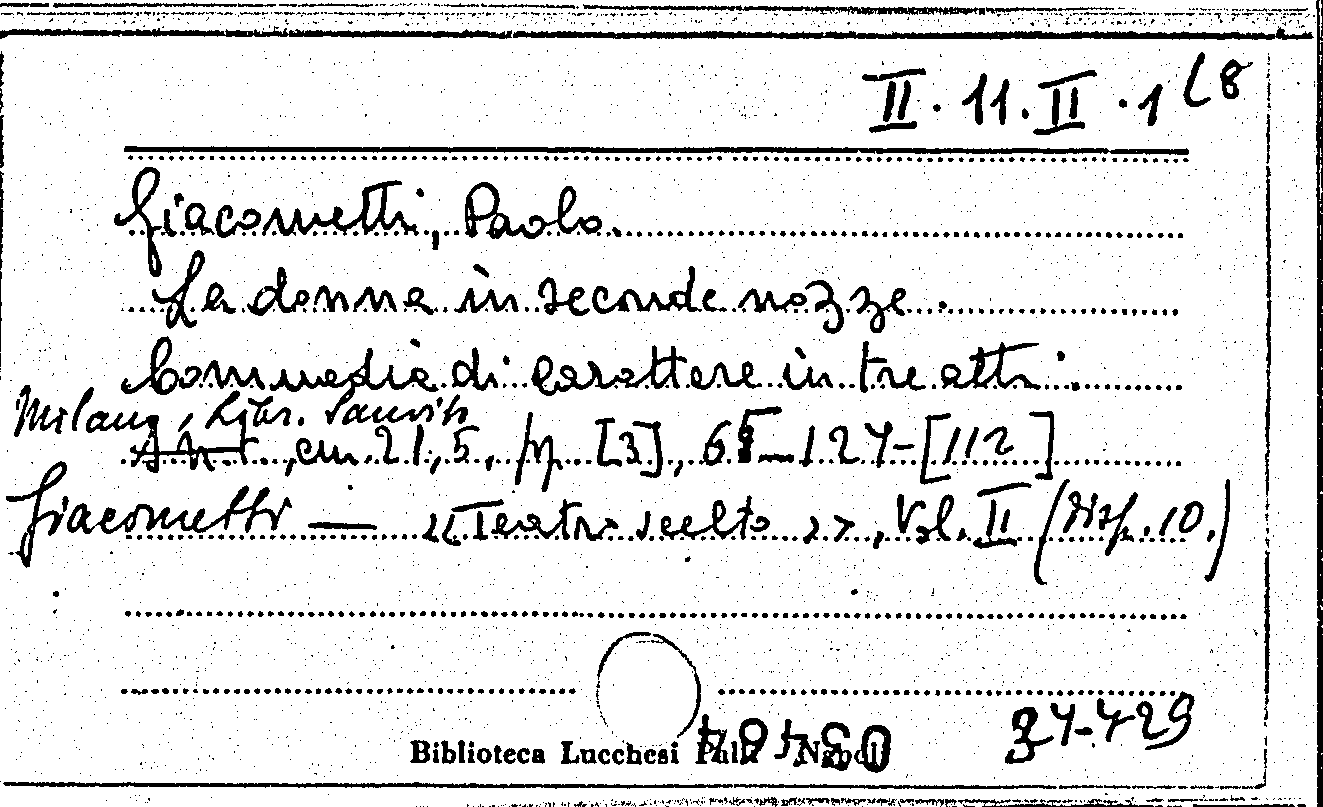 II. 11. II. 1 (8
Giacometti, Paolo.
La donna in seconde nozze.
Commedia di carattere in tre atti.
Milano, Libr. Sanvito
, cm 21,5, pp. [3], 65-127-[112]
Giacometti — «Teatro scelto», Vol. II (disp. 10.)
Biblioteca Lucchesi Palli Napoli